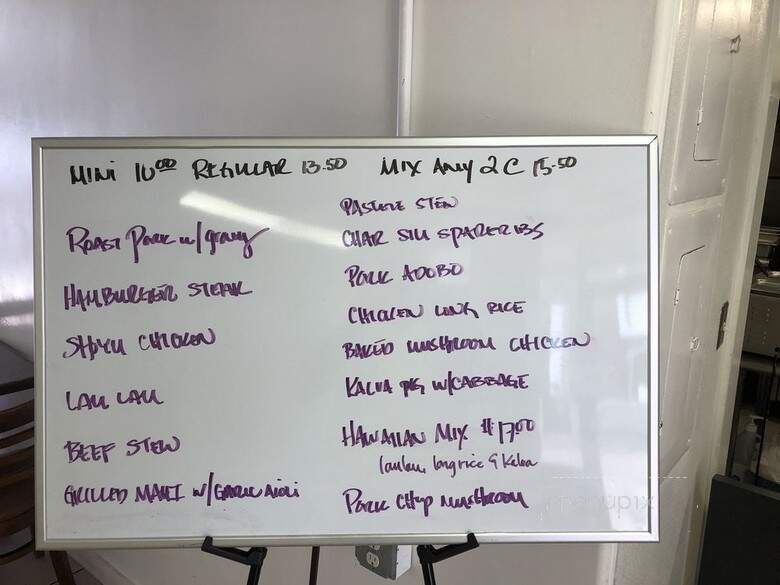 MINI 10.00 REGULAR 13.50 MIX ANY 2 C 15.50
ROAST PORK w/gravy
HAMBURGER STEAK
SHOYU CHICKEN
LAU LAU
BEEF STEW
GRILLED MAHI W/GARLIC AIOLI
PASTELE STEW
CHAR SIU SPARERIBS
PORK ADOBO
CHICKEN LONG RICE
BAKED MUSHROOM CHICKEN
KALUA PIG W/CABBAGE
HAWAIIAN MIX $17.00
laulau, long rice & Kalua
PORK CHOP MUSHROOM
menupix